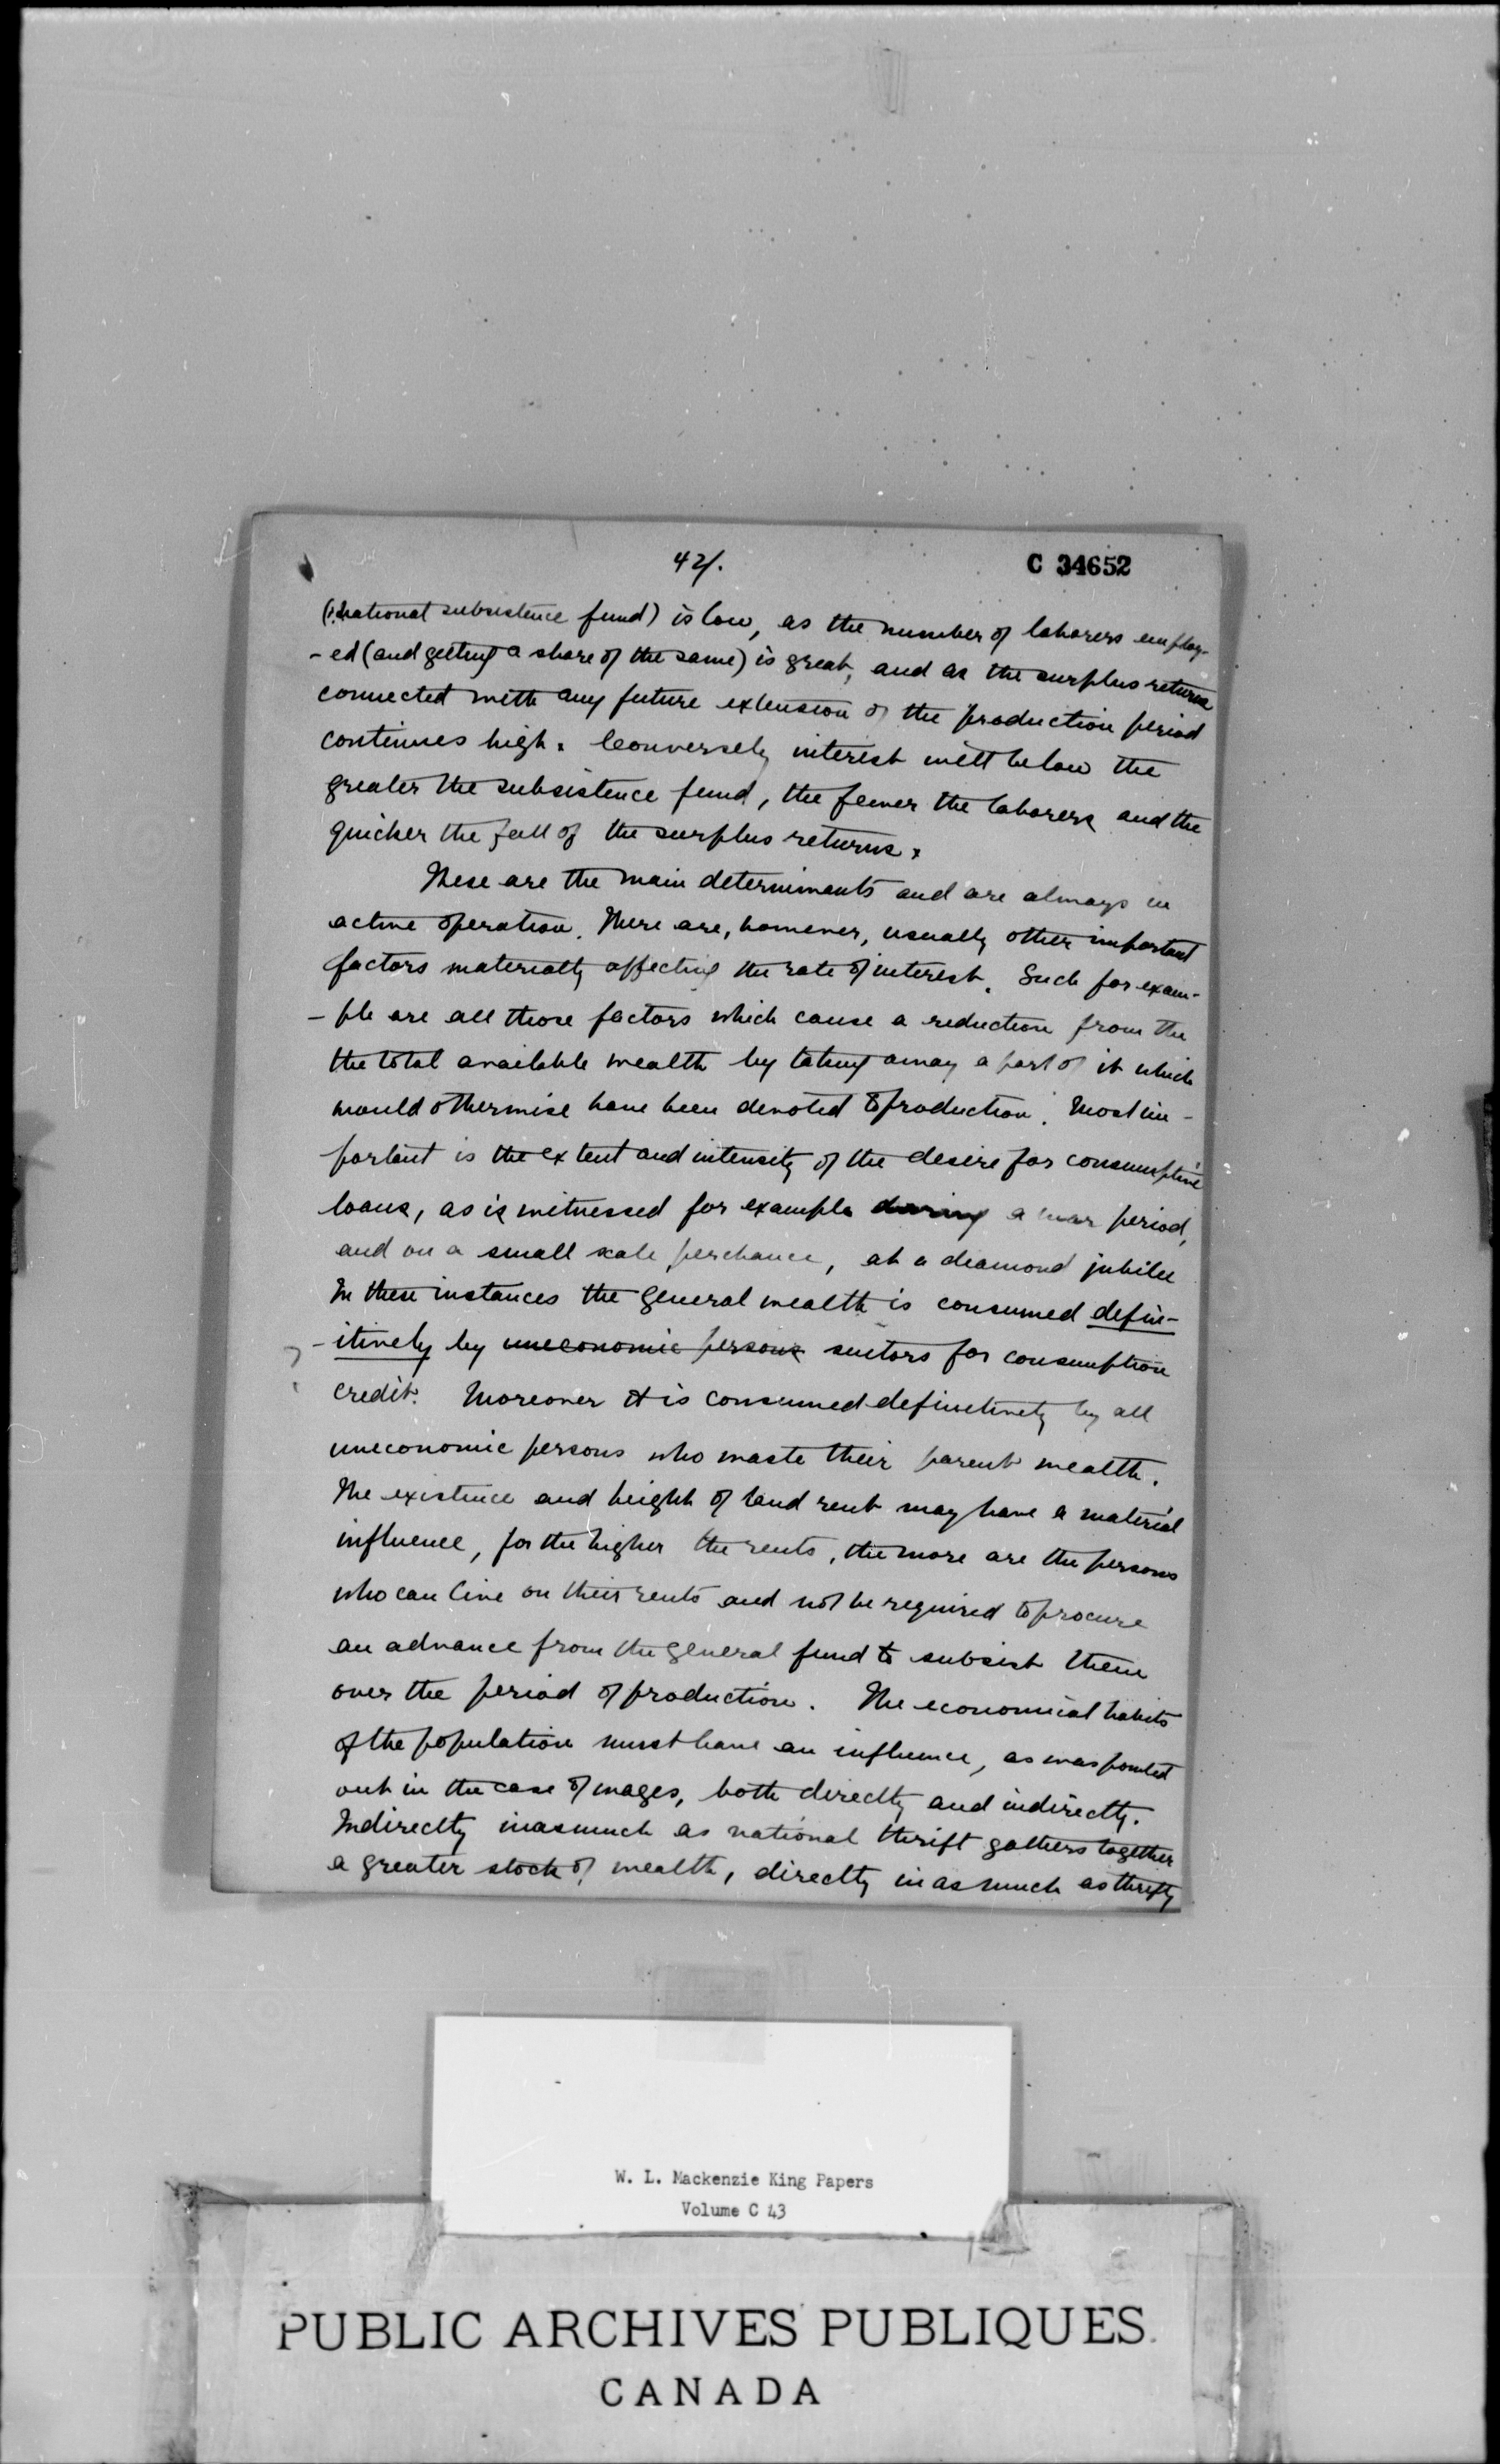 42/.
C 34652
(national subsistence fund) is low, as the number of laborers employ-
-ed (and getting a share of the same) is great, and as the surplus returns
connected with any future extension of the production period
continues high. Conversely interest will be low the
greater the subsistence fund, the fewer the laborers and the
quicker the fall of the surplus returns.
These are the main determinants and are always in
active operation. There are, however, usually other important
factors materially affecting the rate of interest. Such for exam-
-ple are all those factors which cause a reduction from the
the total available wealth by taking away a part of it which
would otherwise have been devoted to production. Most im-
portant is the extent and intensity of the desire for consumptive
loans, as is witnessed for example during a war period,
and on a small scale perchance, at a diamond jubilee
In these instances the general wealth is consumed defin-
-itively by uneconomic persons suitors for consumption
credit. Moreover it is consumed definitively by all
uneconomic persons who waste their parent wealth.
The existence and height of land rent may have a material
influence, for the higher the rents, the more are the persons
who can live on their rents and not be required to procure
an advance from the general fund to subsist them
over the period of production. The economical habits
of the population must have an influence, as was pointed
out in the case of wages, both directly and indirectly.
Indirectly inasmuch as national thrift gathers together
a greater stock of wealth, directly in as much as thrifty
W. L. Mackenzie King Papers
Volume C 43
PUBLIC ARCHIVES PUBLIQUES
CANADA